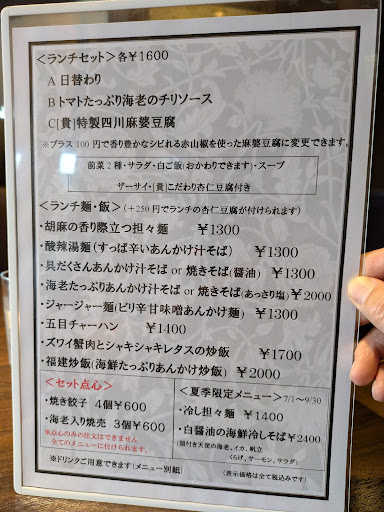 ＜ランチセット＞各￥1600
A 日替わり
B トマトたっぷり海老のチリソース
C[貴]特製四川麻婆豆腐
※プラス 100 円で香り豊かなシビれる赤山椒を使った麻婆豆腐に変更できます。
前菜 2 種・サラダ・白ご飯(おかわりできます)・スープ
ザーサイ・[貴]こだわり杏仁豆腐付き
＜ランチ麺・飯＞(＋250 円でランチの杏仁豆腐が付けられます)
・胡麻の香り際立つ担々麺 ￥1300
・酸辣湯麺(すっぱ辛いあんかけ汁そば) ￥1300
・具だくさんあんかけ汁そば or 焼きそば(醤油) ￥1300
・海老たっぷりあんかけ汁そば or 焼きそば(あっさり塩)￥2000
・ジャージャー麺(ピリ辛甘味噌あんかけ麺) ￥1300
・五目チャーハン ￥1400
・ズワイ蟹肉とシャキシャキレタスの炒飯 ￥1700
・福建炒飯(海鮮たっぷりあんかけ炒飯) ￥2000
＜セット点心＞
・焼き餃子 4個￥600
・海老入り焼売 3個￥600
※点心のみの注文はできません
全てのメニューに付けられます。
※ドリンクご用意できます(メニュー別紙)
＜夏季限定メニュー＞ 7/1～9/30
・冷し担々麺 ￥1400
・白醤油の海鮮冷しそば￥2400
(頭付き天使の海老、イカ、帆立
くらげ、サーモン、サラダ)
(表示価格は全て税込みです)